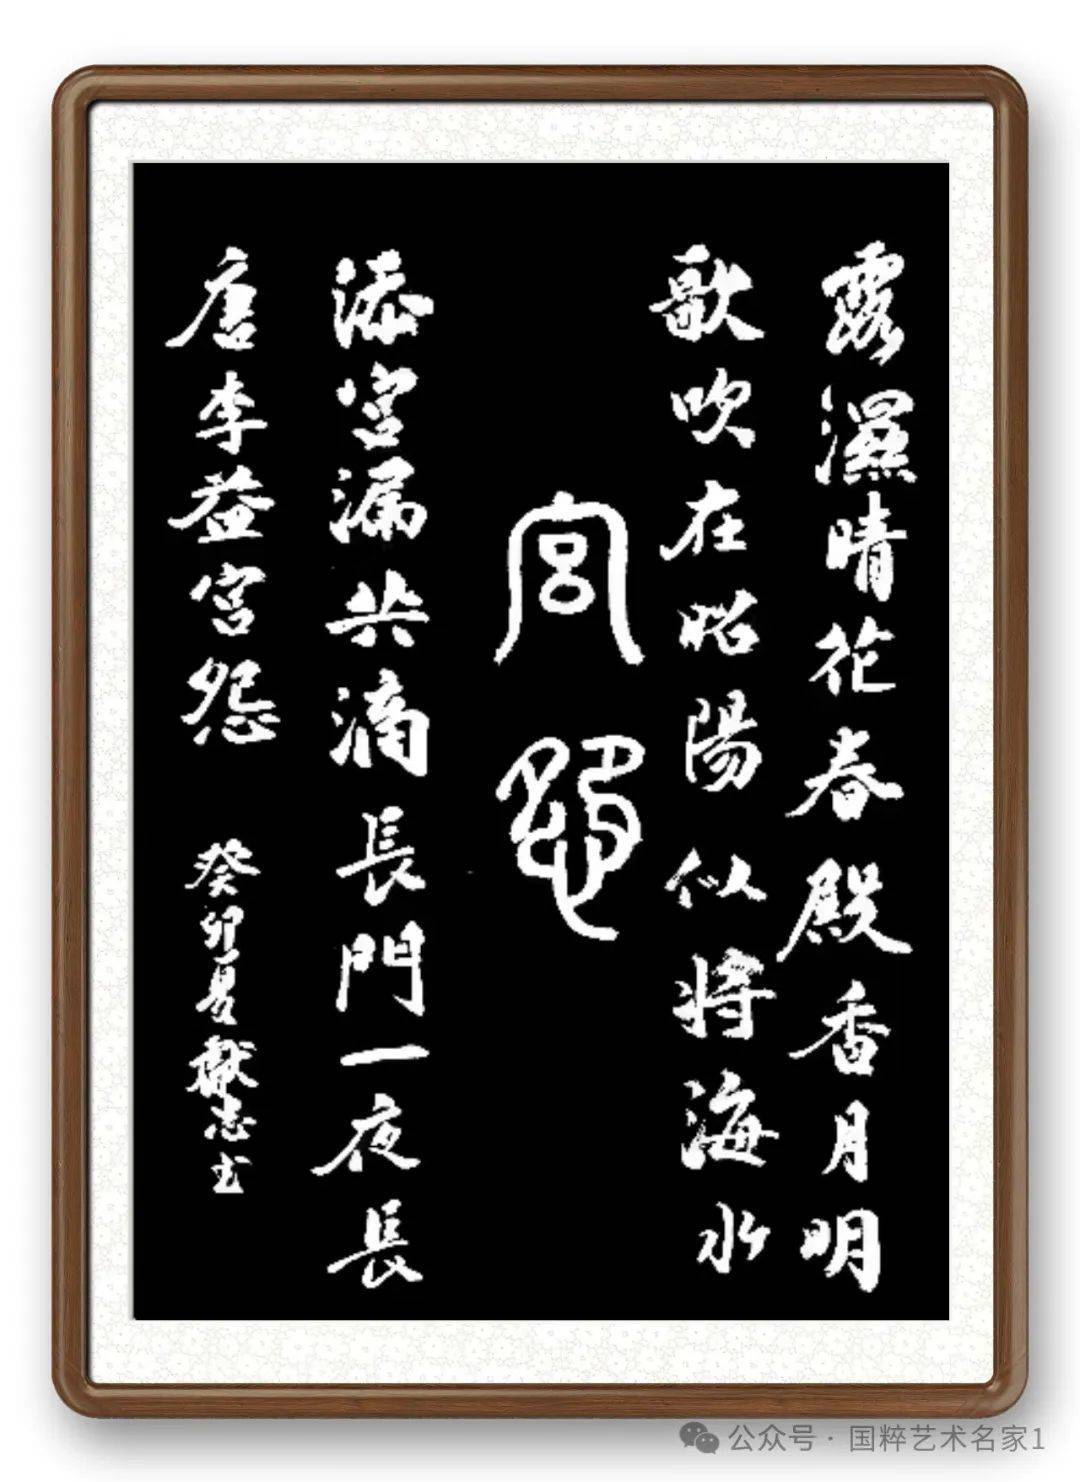 露濕晴花春殿香月明
歌吹在昭陽似將海水
宮怨
添宮漏共滴長門一夜長
唐李益宮怨
癸卯夏獻志书
公众号·国粹艺术名家1